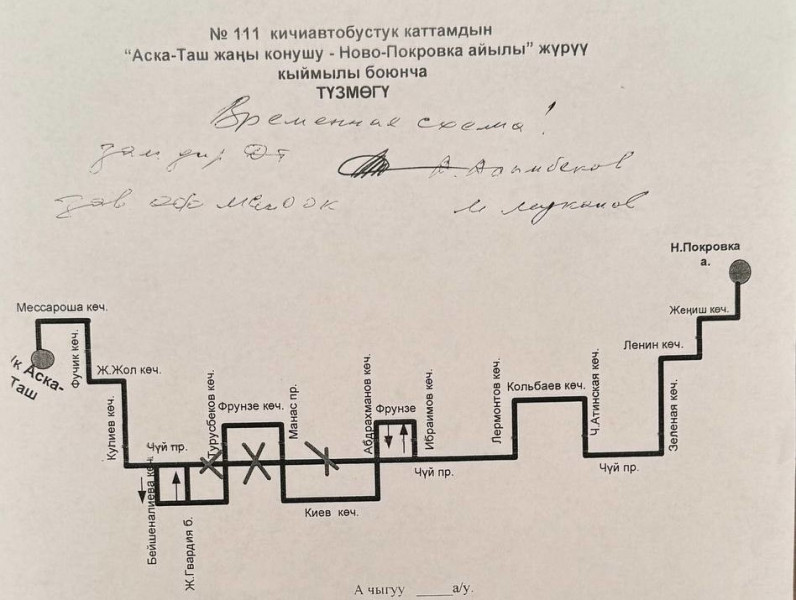 № 111 кичиавтобустук каттамдын
"Аска-Таш жаңы конушу - Ново-Покровка айылы" жүрүү
кыймылы боюнча
ТҮЗМӨГҮ
Временная схема!
зам дир
А. Алымбеков
зав
М Мукамов
Н.Покровка
а.
Мессароша көч.
Жеңиш көч.
Фучик көч.
Ленин көч.
Аска-
Таш
Ж.Жол көч.
Кулиев көч.
Чүй пр.
Турусбеков көч.
Фрунзе көч.
Манас пр.
Абдрахманов көч.
Фрунзе
Ибраимов көч.
Лермонтов көч.
Кольбаев көч.
Ч.Атинская көч.
Зеленая көч.
Чүй пр.
Чүй пр.
Бейшеналиева көч.
Ж.Гвардия б.
Киев көч.
А чыгуу _____а/у.